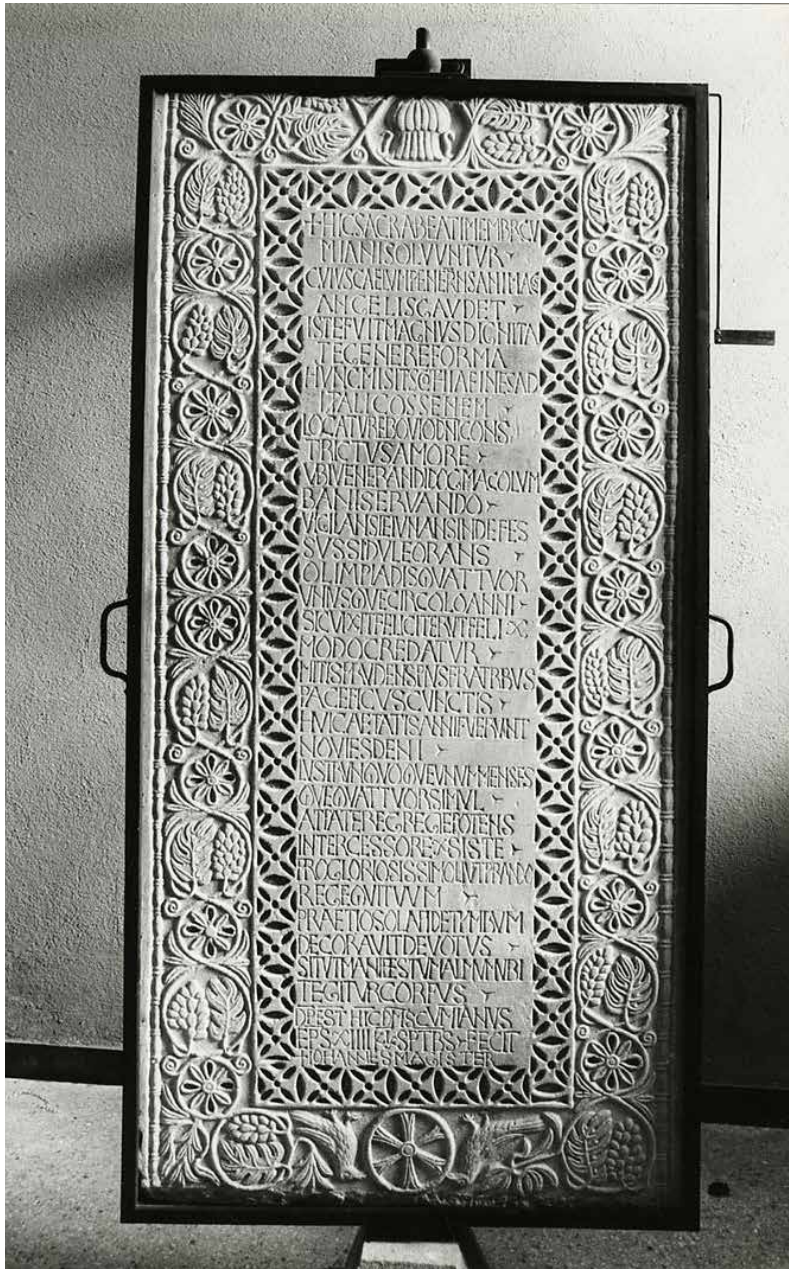 + HIC SACRA BEATI MEMBRA CV
MIANI SOLVVNTVR
CVIVS CAELVM PENETRNS ANIMA
ANGELIS GAVDET
ISTE FVIT MAGNVS DIGNITA
TE GENERE FORMA
HVNC MISIT SCOTHIA FINES AD
ITALICOS SENEM
LOCATVR EBOVIO DNI CONS
TRICTVS AMORE
VBI VENERANDI DOGMA COLVM
BANI SERVANDO
VIGILANS IEIVNANS INDEFES
SVS SIDVLE ORANS
OLIMPIADIS QVATTVOR
VNIVSQVE CIRCOLO ANNI
SIC VIXIT FELICITER VT FELIX
MODO CREDATVR
MITIS PRVDENS PIVS FRATRIBVS
PACEFICVS CVNCTIS
HVIC AETATIS ANNI FVERVNT
NOVIES DENI
LVSTRVM QVOQVE VNVM MENSES
QVE QVATTVOR SIMVL
AT PATER EGREGIE POTENS
INTERCESSOR EXSISTE
PRO GLORIOSISSIMO LIVTPRANDO
REGE QVI TVVM
PRAETIOSO LAPIDE TYMBVM
DECORAVIT DEVOTVS
SIT VT MANIFESTVM ALMVM VBI
TEGITVR CORPVS
DP EST HIC DMS CVMIANVS
EPS XIIII KL SPTBS FECIT
IOHANNES MAGISTER